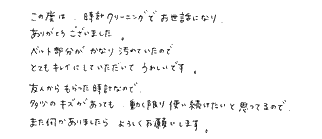 この度は、時計クリーニングでお世話になり
ありがとうございました。
ベルト部分がかなり汚れていたので
とてもキレイにしていただいてうれしいです。
友人からもらった時計なので
多少のキズがあっても、動く限り使い続けたいと思ってるので、
また何かありましたらよろしくお願いします。